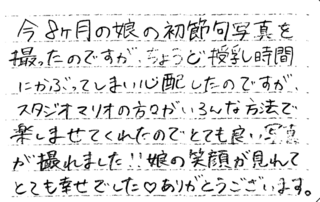 今8ヶ月の娘の初節句写真を
撮ったのですが、ちょうど授乳時間
にかぶってしまい心配したのですが、
スタジオマリオの方々がいろんな方法で
楽しませてくれたのでとても良い写真
が撮れました!!娘の笑顔が見れて
とても幸せでした♡ありがとうございます。